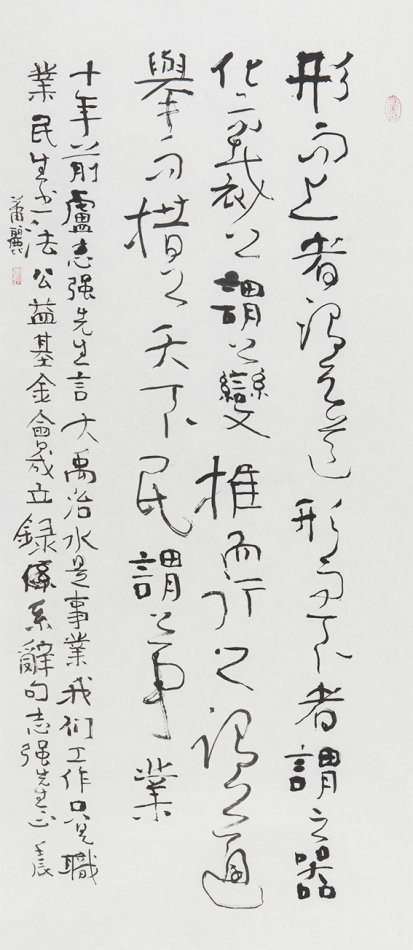 形而上者謂之道形而下者謂之器
化而裁之謂之變推而行之謂之通
舉而措之天下民謂之事業
十年前盧志强先生言大禹治水是事業我们工作只是職
業民生书法公益基金會成立録系辭句志强先生正壬辰
蕭麗